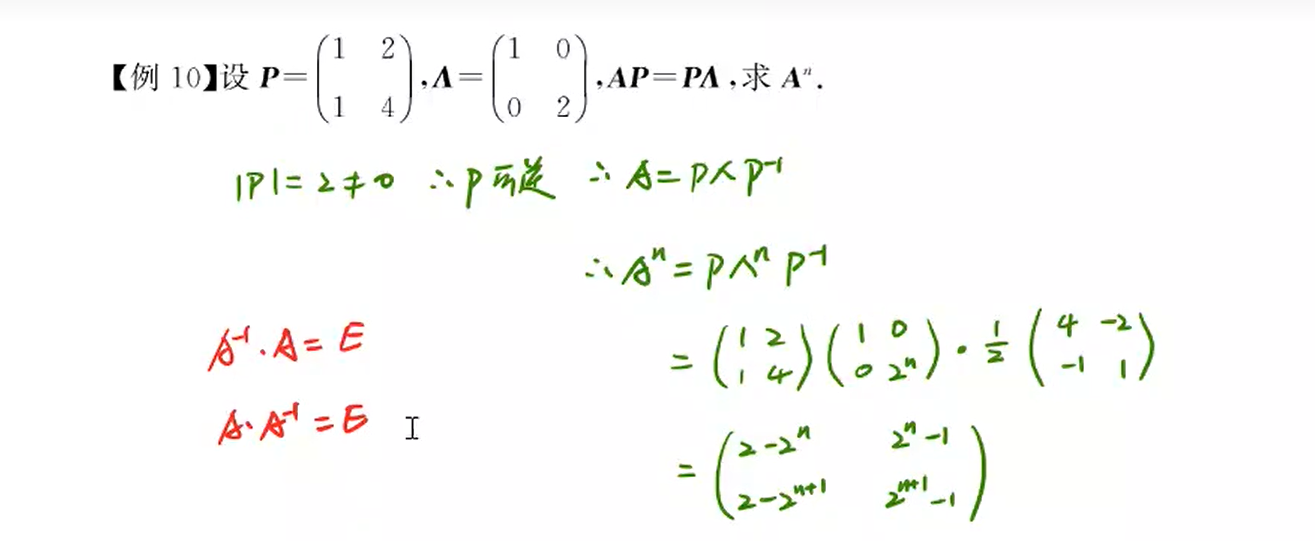 【例 10】设 P=(1 2 1 4),Λ=(1 0 0 2),AP=PΛ,求 Aⁿ.
|P|=2≠0 ∴P可逆 ∴A=PΛP⁻¹
∴Aⁿ=PΛⁿP⁻¹
A⁻¹·A=E
=(1 2 1 4)(1 0 0 2ⁿ)·1/2(4 -2 -1 1)
A·A⁻¹=E
=(2-2ⁿ 2ⁿ-1 2-2ⁿ⁺¹ 2ⁿ⁺¹-1)